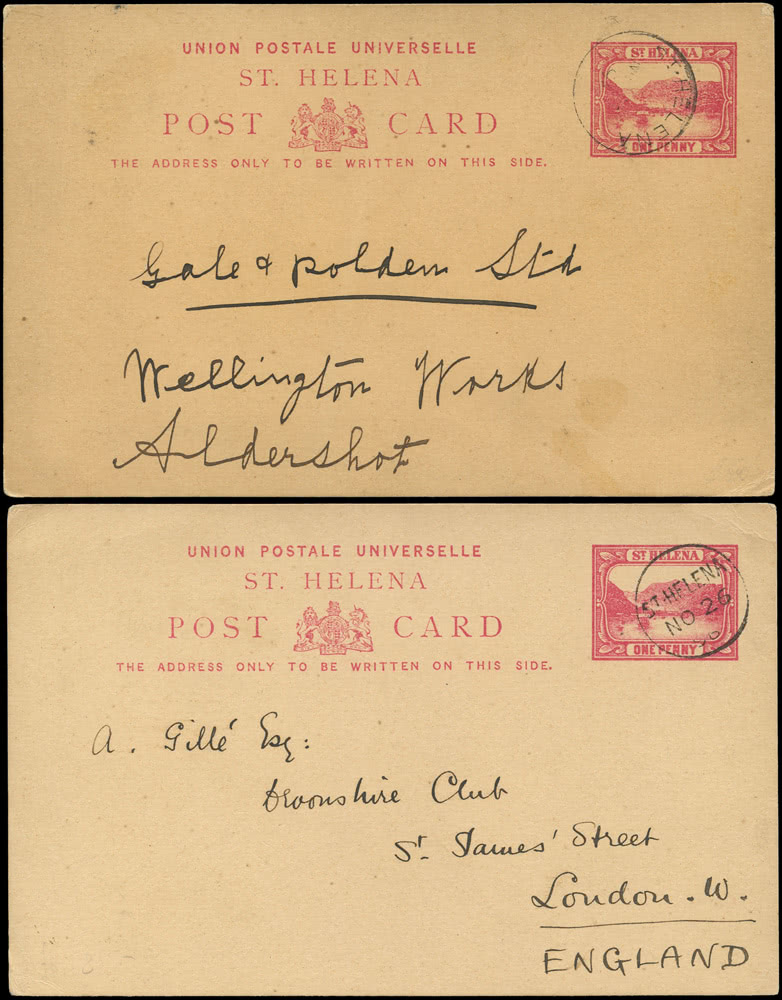 UNION POSTALE UNIVERSELLE
ST. HELENA
POST CARD
THE ADDRESS ONLY TO BE WRITTEN ON THIS SIDE.
ST HELENA
ONE PENNY
ST. HELENA
Gale & Polden Ltd
Wellington Works
Aldershot
UNION POSTALE UNIVERSELLE
ST. HELENA
POST CARD
THE ADDRESS ONLY TO BE WRITTEN ON THIS SIDE.
ST HELENA
ONE PENNY
ST. HELENA
NO 26
A. Gillé Esq:
Devonshire Club
St. James' Street
London. W.
ENGLAND